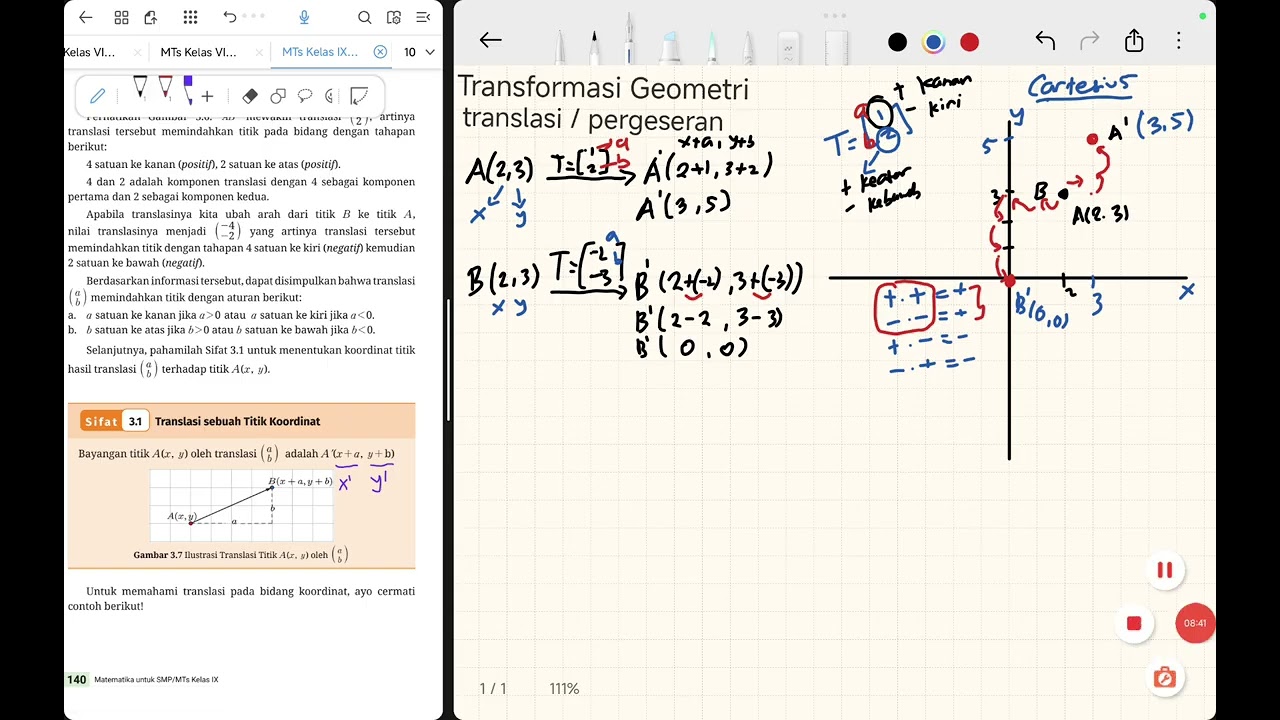 Kelas VI...
MTs Kelas VI...
MTs Kelas IX...
10
translasi tersebut memindahkan titik pada bidang dengan tahapan
berikut:
4 satuan ke kanan (positif), 2 satuan ke atas (positif).
4 dan 2 adalah komponen translasi dengan 4 sebagai komponen
pertama dan 2 sebagai komponen kedua.
Apabila translasinya kita ubah arah dari titik B ke titik A,
nilai translasinya menjadi (−4 −2) yang artinya translasi tersebut
memindahkan titik dengan tahapan 4 satuan ke kiri (negatif) kemudian
2 satuan ke bawah (negatif).
Berdasarkan informasi tersebut, dapat disimpulkan bahwa translasi
(a b) memindahkan titik dengan aturan berikut:
a. a satuan ke kanan jika a>0 atau a satuan ke kiri jika a<0.
b. b satuan ke atas jika b>0 atau b satuan ke bawah jika b<0.
Selanjutnya, pahamilah Sifat 3.1 untuk menentukan koordinat titik
hasil translasi (a b) terhadap titik A(x, y).
Sifat 3.1 Translasi sebuah Titik Koordinat
Bayangan titik A(x, y) oleh translasi (a b) adalah A'(x+a, y+b)
x' y'
B(x + a, y + b)
A(x, y)
a
b
Gambar 3.7 Ilustrasi Translasi Titik A(x, y) oleh (a b)
Untuk memahami translasi pada bidang koordinat, ayo cermati
contoh berikut!
140 Matematika untuk SMP/MTs Kelas IX
Transformasi Geometri
translasi / pergeseran
x+a, y+b
A(2,3) T=[1 2] a b A'(2+1, 3+2)
x y
A'(3,5)
a
b
B(2,3) T=[-2 -3] B'(2+(-2), 3+(-3))
x y
B'(2-2, 3-3)
B'(0,0)
+ kanan
- kiri
T= a 1
b 2
+ keatas
- kebawah
Cartesius
y
5
A'(3,5)
3
B
A(2.3)
x
2
3
B'(0,0)
+ . + = +
- . - = +
+ . - = -
- . + = -
08:41
1 / 1
111%